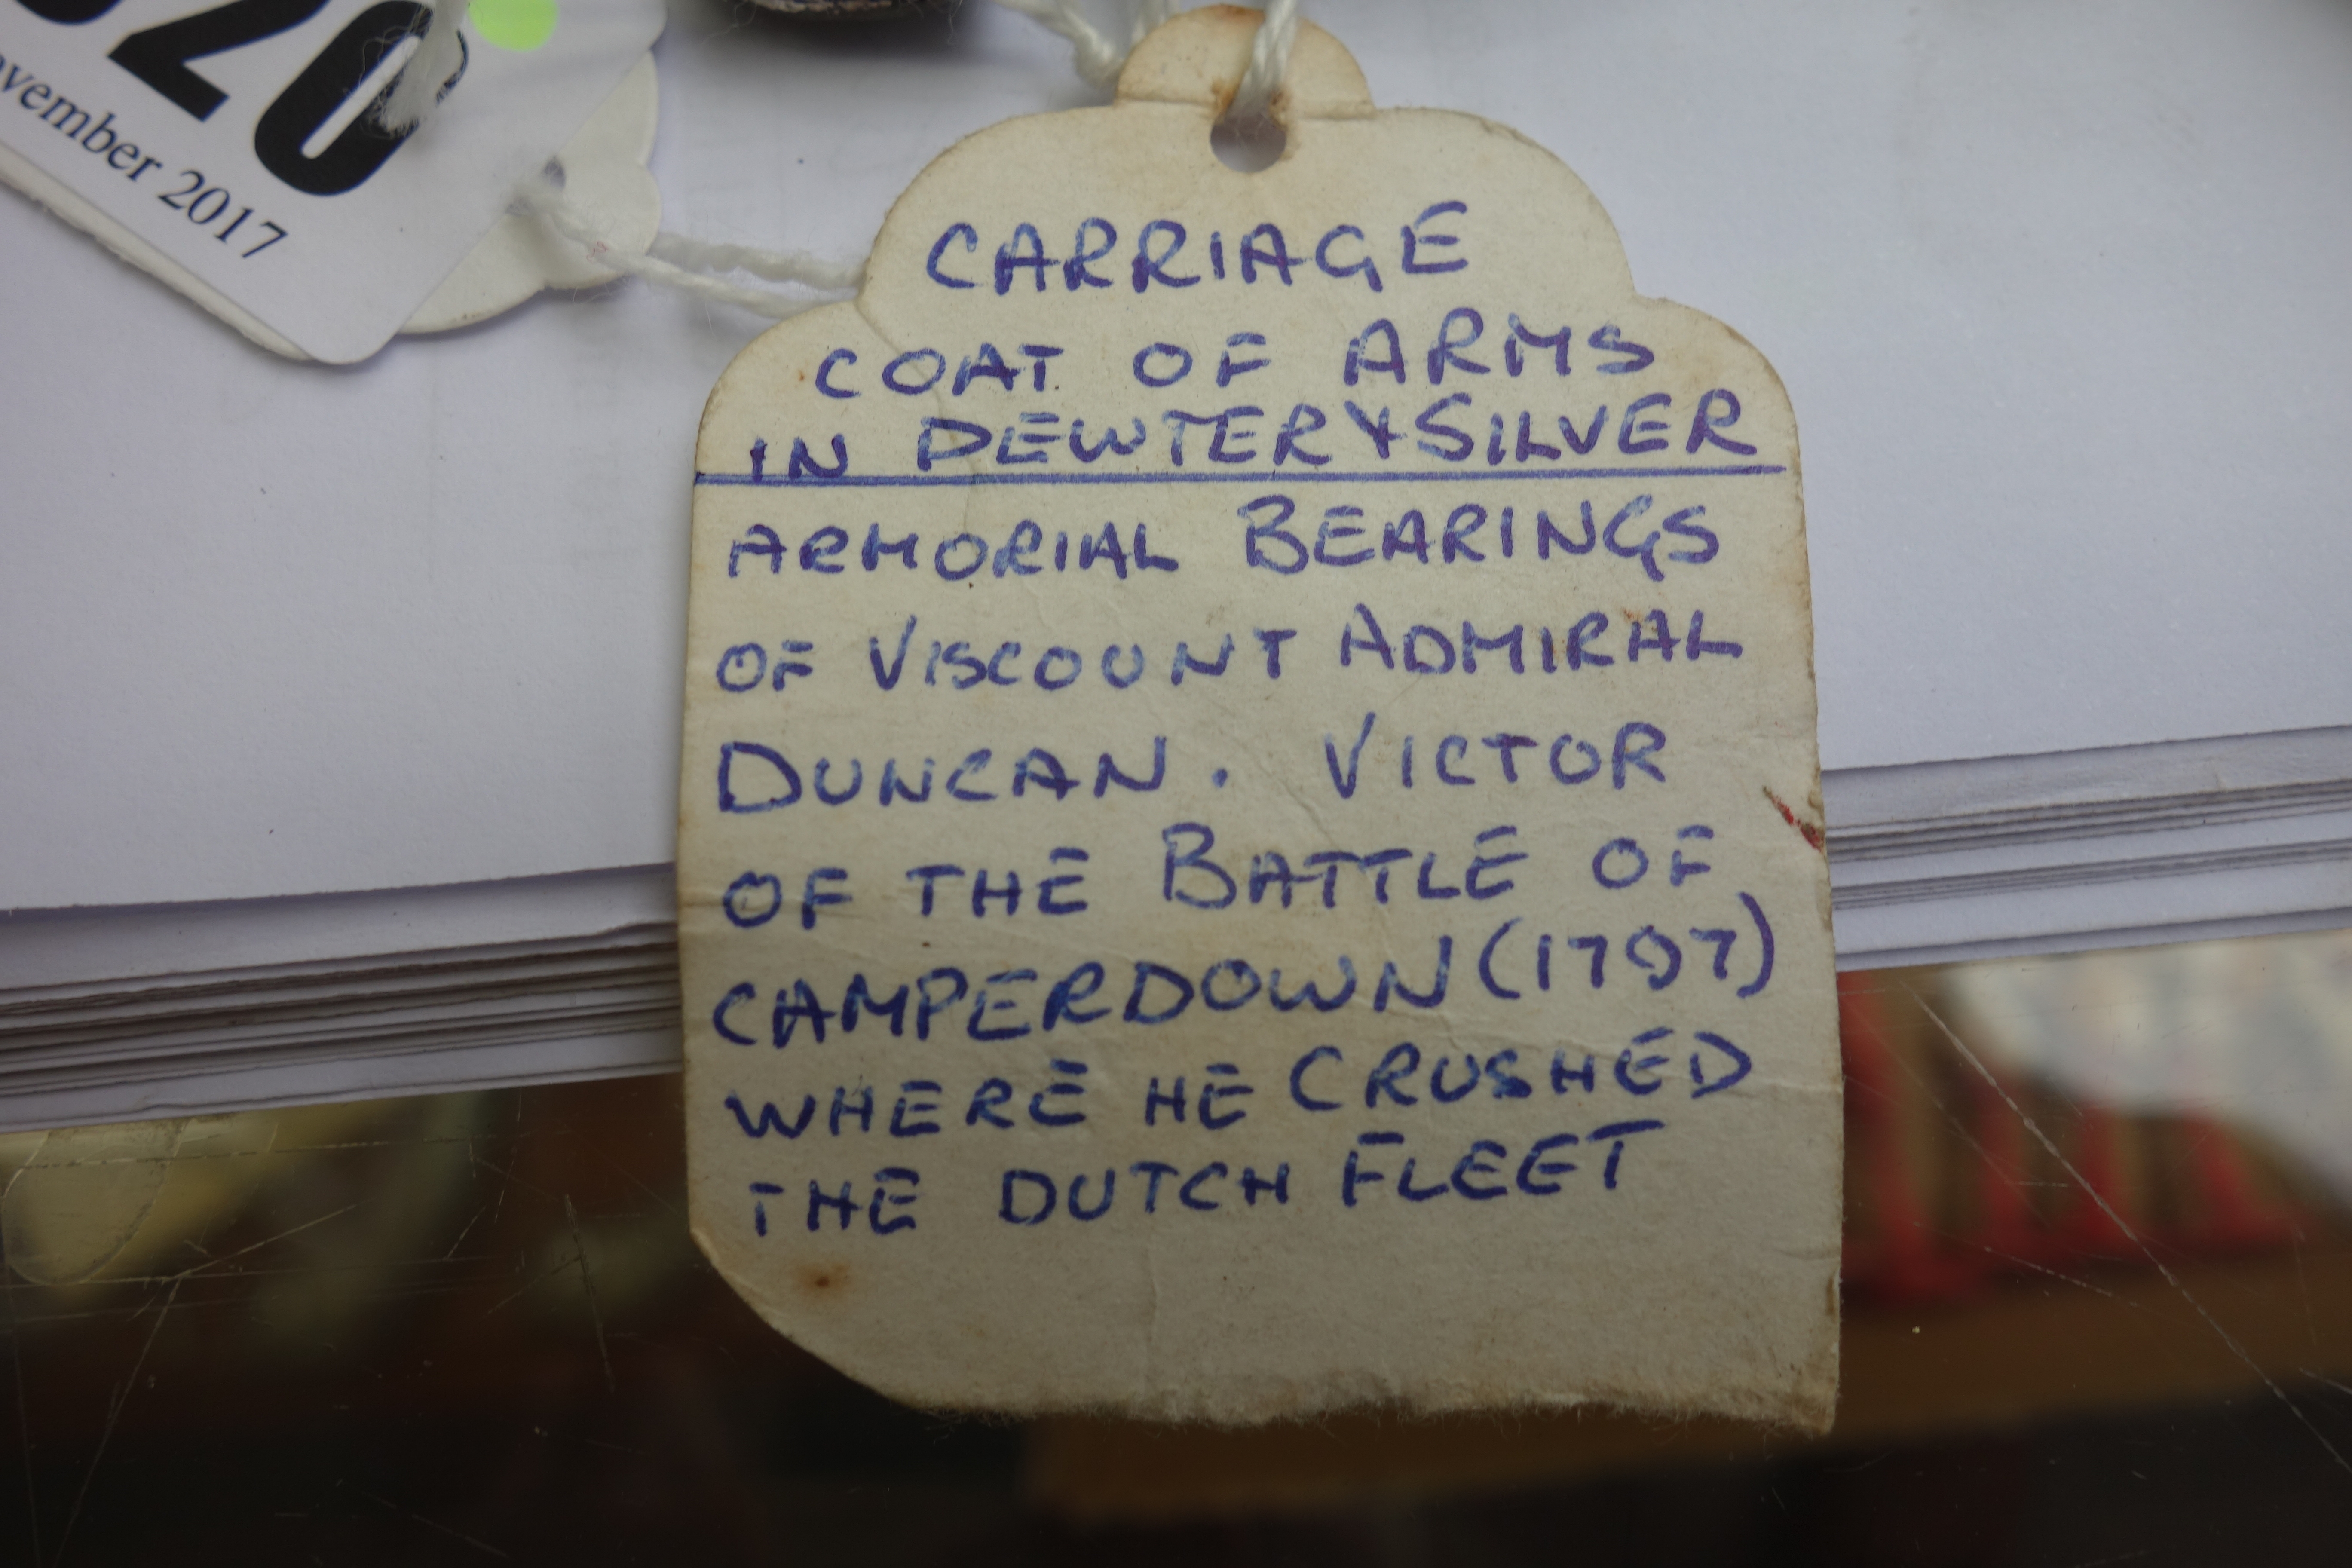 20
vember 2017
CARRIAGE
COAT OF ARMS
IN PEWTER & SILVER
ARMORIAL BEARINGS
OF VISCOUNT ADMIRAL
DUNCAN. VICTOR
OF THE BATTLE OF
CAMPERDOWN (1797)
WHERE HE CRUSHED
THE DUTCH FLEET